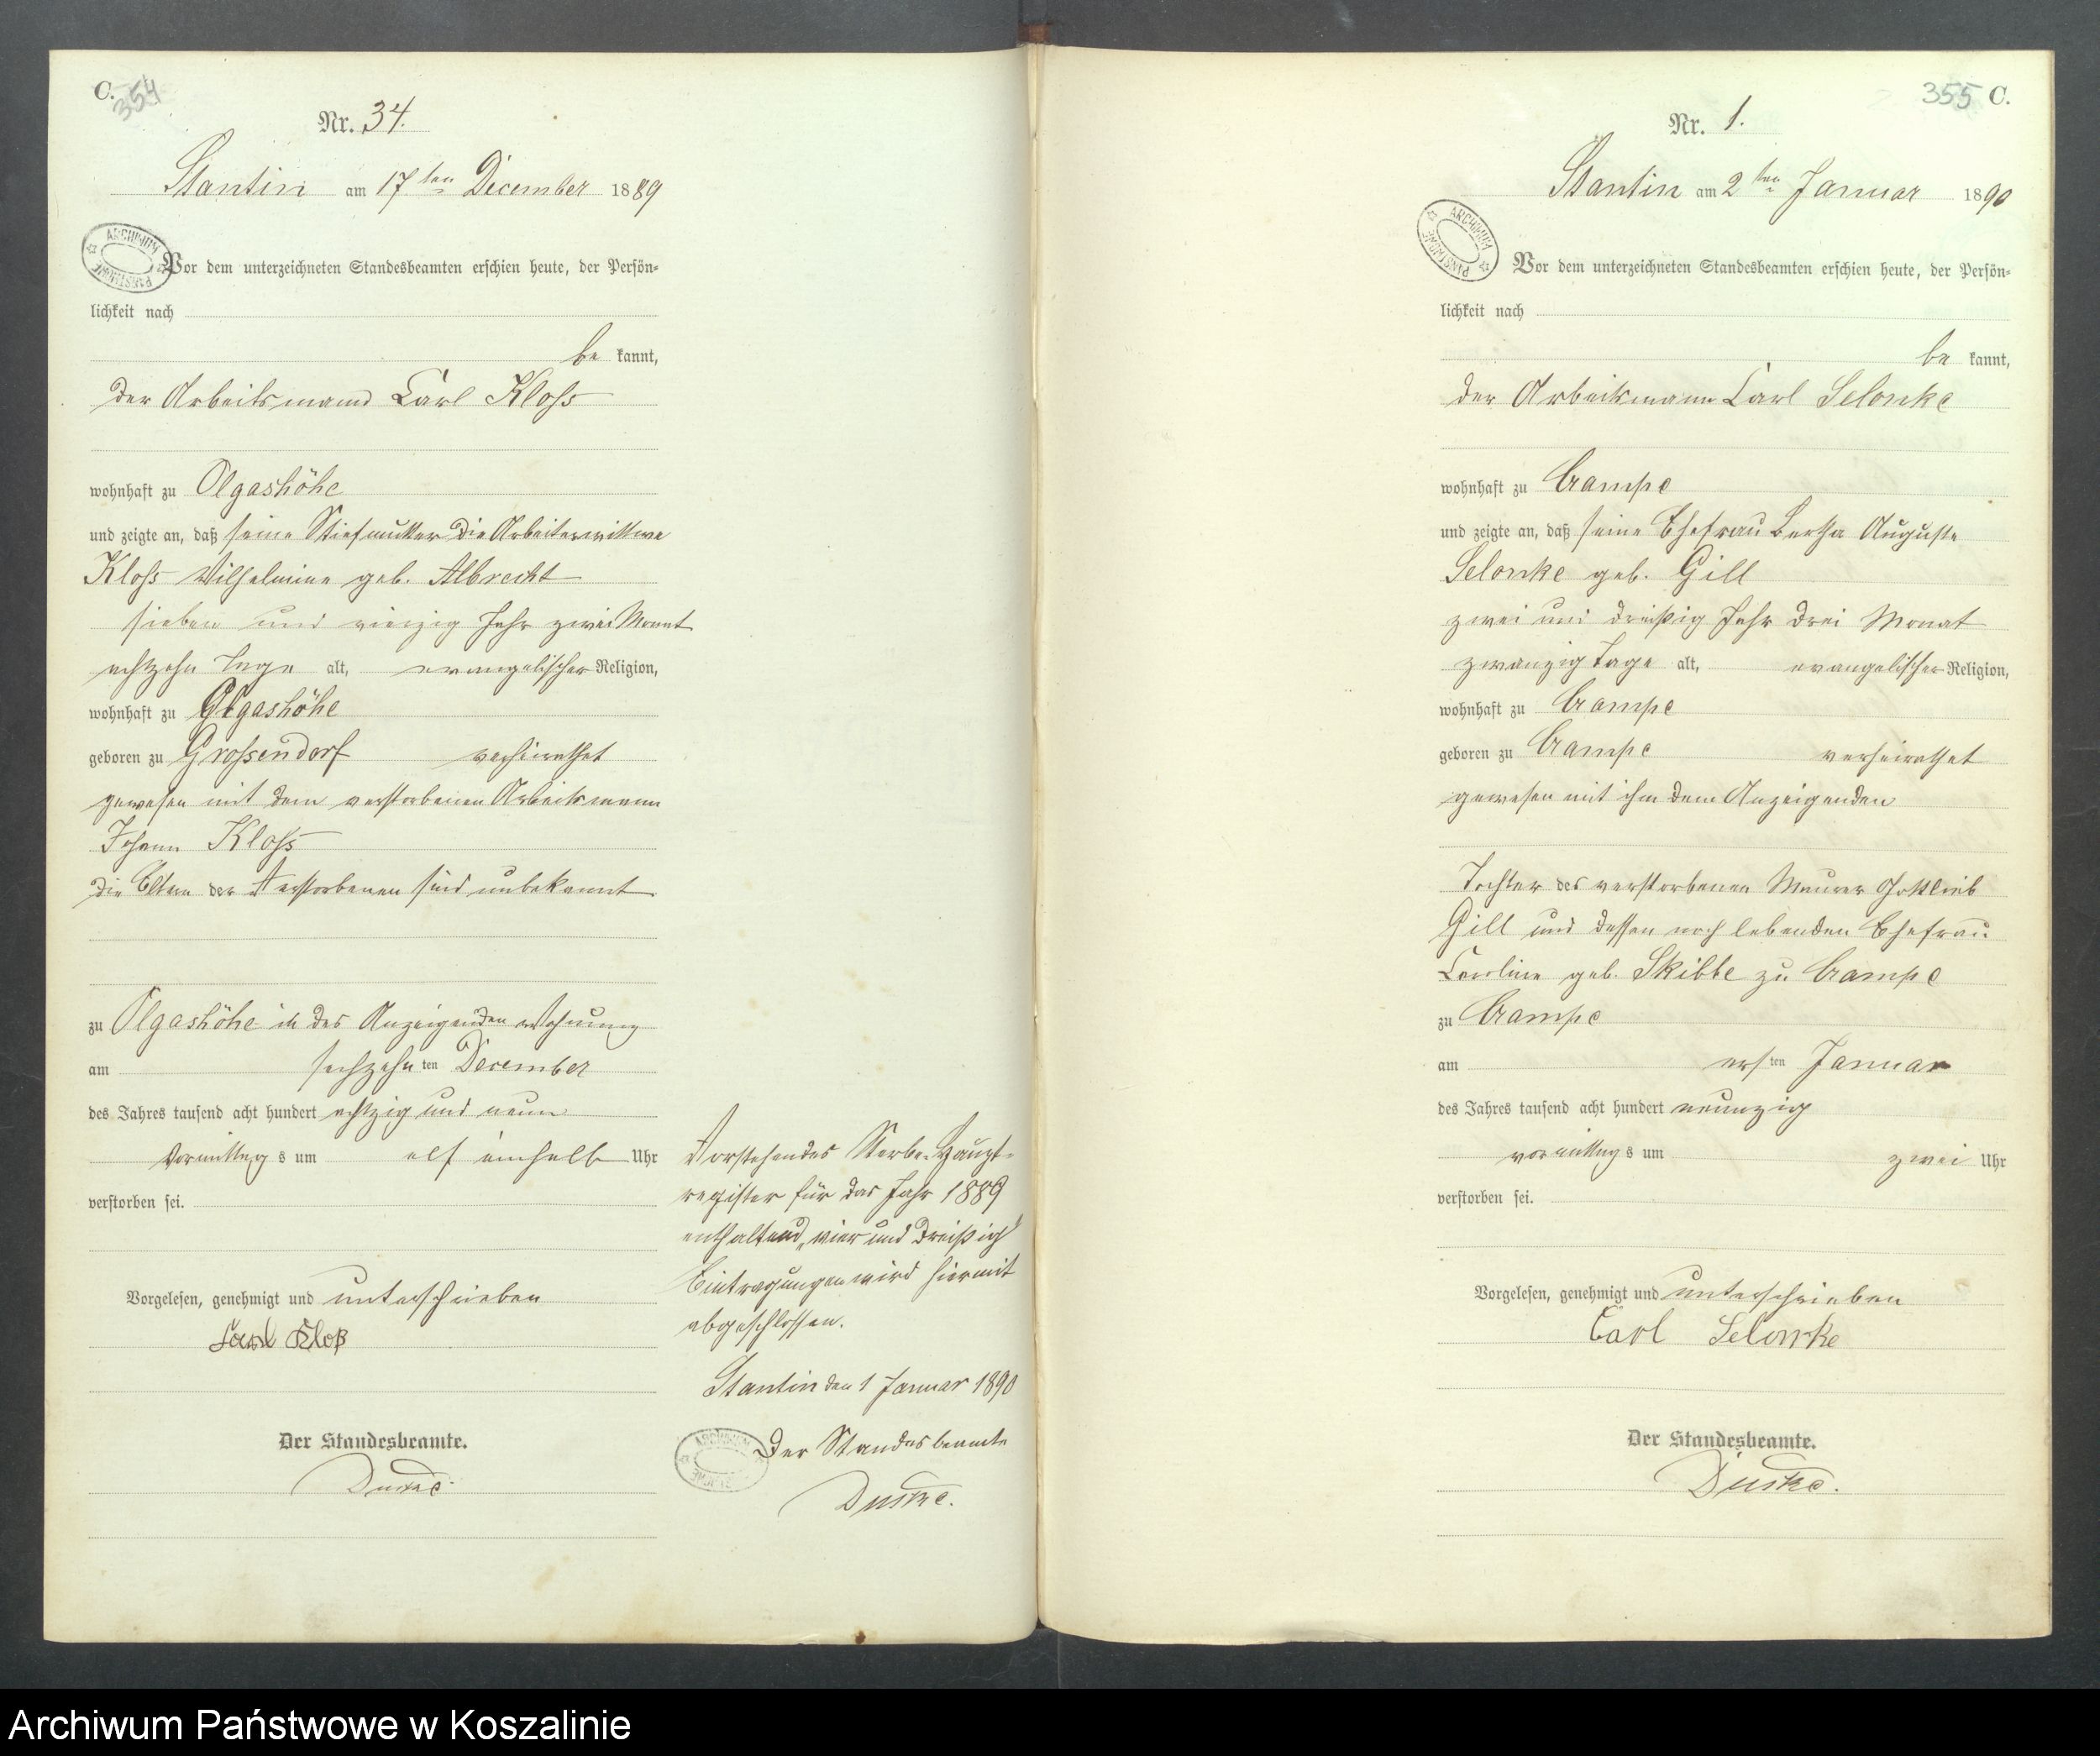 C.
354
Nr. 34.
Stantin am 17ten December 1889
ARCHIWUM PAŃSTWOWE
Vor dem unterzeichneten Standesbeamten erschien heute, der Persön-
lichkeit nach
be kannt,
der Arbeitsmann Carl Kloss
wohnhaft zu Olgashöhe
und zeigte an, daß seine Stiefmutter die Arbeiterwittwe
Kloss Wilhelmine geb. Albrecht
sieben und vierzig Jahr zwei Monat
achtzehn Tage alt, evangelischer Religion,
wohnhaft zu Olgashöhe
geboren zu Grossendorf verheirathet
gewesen mit dem verstorbenen Arbeitsmann
Johann Kloss
die Eltern der Verstorbenen sind unbekannt
zu Olgashöhe in des Anzeigenden Wohnung
am sechzehn ten December
des Jahres tausend acht hundert achtzig und neun
Vormittag s um elf einhalb Uhr
verstorben sei.
Vorgelesen, genehmigt und unterschrieben
Carl Kloß
Der Standesbeamte.
Duske.
Vorstehendes Sterbe-Haupt-
register für das Jahr 1889
enthaltend „vier und dreißig"
Eintragungen wird hiermit
abgeschlossen.
Stantin den 1 Januar 1890
Der Standesbeamte
Duske.
355 C.
Nr. 1.
Stantin am 2ten Januar 1890
ARCHIWUM PAŃSTWOWE
Vor dem unterzeichneten Standesbeamten erschien heute, der Persön-
lichkeit nach
be kannt,
der Arbeitsmann Carl Selonke
wohnhaft zu Crampe
und zeigte an, daß seine Ehefrau Bertha Auguste
Selonke geb. Gill
zwei und dreißig Jahr drei Monat
zwanzig Tage alt, evangelischer Religion,
wohnhaft zu Crampe
geboren zu Crampe verheirathet
gewesen mit ihm dem Anzeigenden
Tochter des verstorbenen Maurer Gottlieb
Gill und dessen noch lebenden Ehefrau
Caroline geb. Skibbe zu Crampe
zu Crampe
am ers ten Januar
des Jahres tausend acht hundert neunzig
vormittag s um zwei Uhr
verstorben sei.
Vorgelesen, genehmigt und unterschrieben
Carl Selonke
Der Standesbeamte.
Duske.
Archiwum Państwowe w Koszalinie